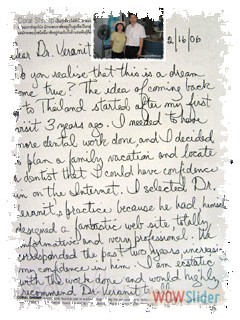 2/16/06
Dear Dr. Veranit
Do you realise that this is a dream
come true? The idea of coming back
to Thailand started after my first
visit 3 years ago. I needed to have
more dental work done, and I decided
to plan a family vacation and locate
a dentist that I could have confidence
in on the Internet. I selected Dr.
Veranit, practice because he had, himself
designed a fantastic web site, totally
informative and very professional. We
corresponded the past two years increasing
my confidence in him. I am ecstatic
with the work done and would highly
recommend Dr. Veranit to all
WOWSlider